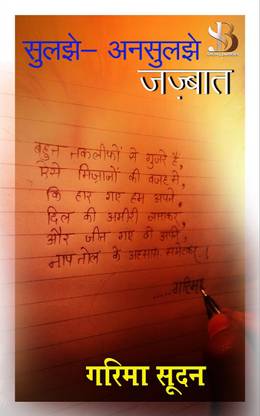 सुलझे- अनसुलझे
जज़्बात
बहुत तकलीफों से गुज़रे हैं,
ऐसे मिज़ाजों की वजह से,
कि हार गए हम अपने,
दिल की अमीरी लगाकर,
और जीत गए वो अपनी,
नाप तोल के अहसास समेटकर।
.....गरिमा
गरिमा सूदन